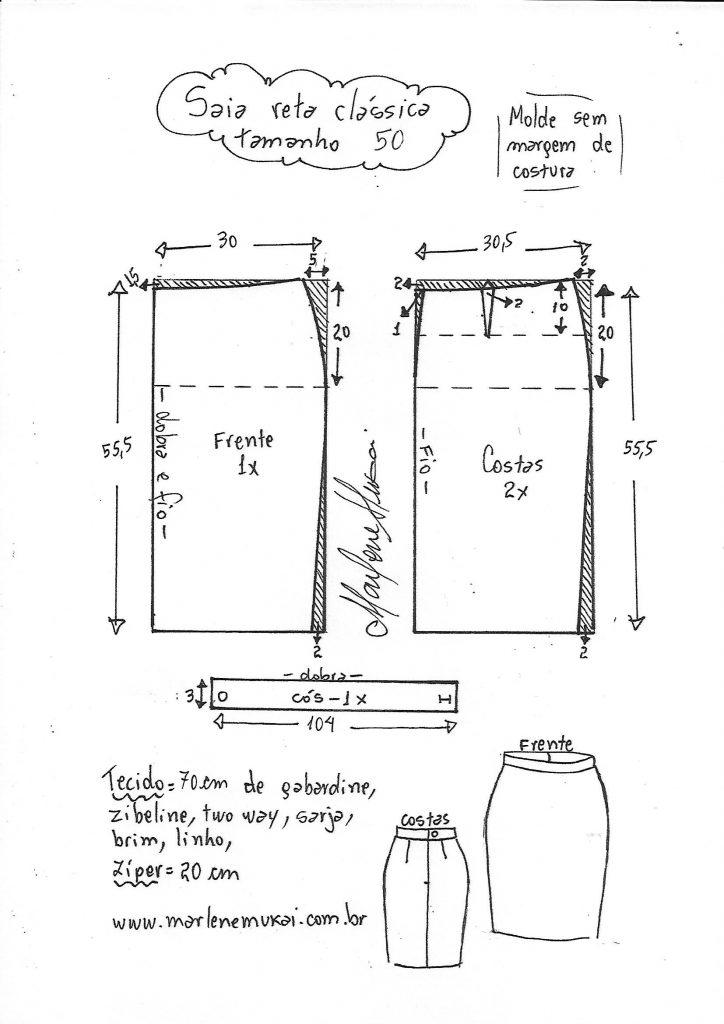 Saia reta clássica
tamanho 50
Molde sem
margem de
costura
30
5
1,5
20
55,5
dobra e fio
Frente
1x
2
30,5
2
2
1
2
10
20
55,5
Fio
Costas
2x
2
Marlene Mukai
dobra
3
cós - 1x
104
Tecido = 70 cm de gabardine,
zibeline, two way, sarja,
brim, linho,
Zíper = 20 cm
www.marlenemukai.com.br
Costas
Frente